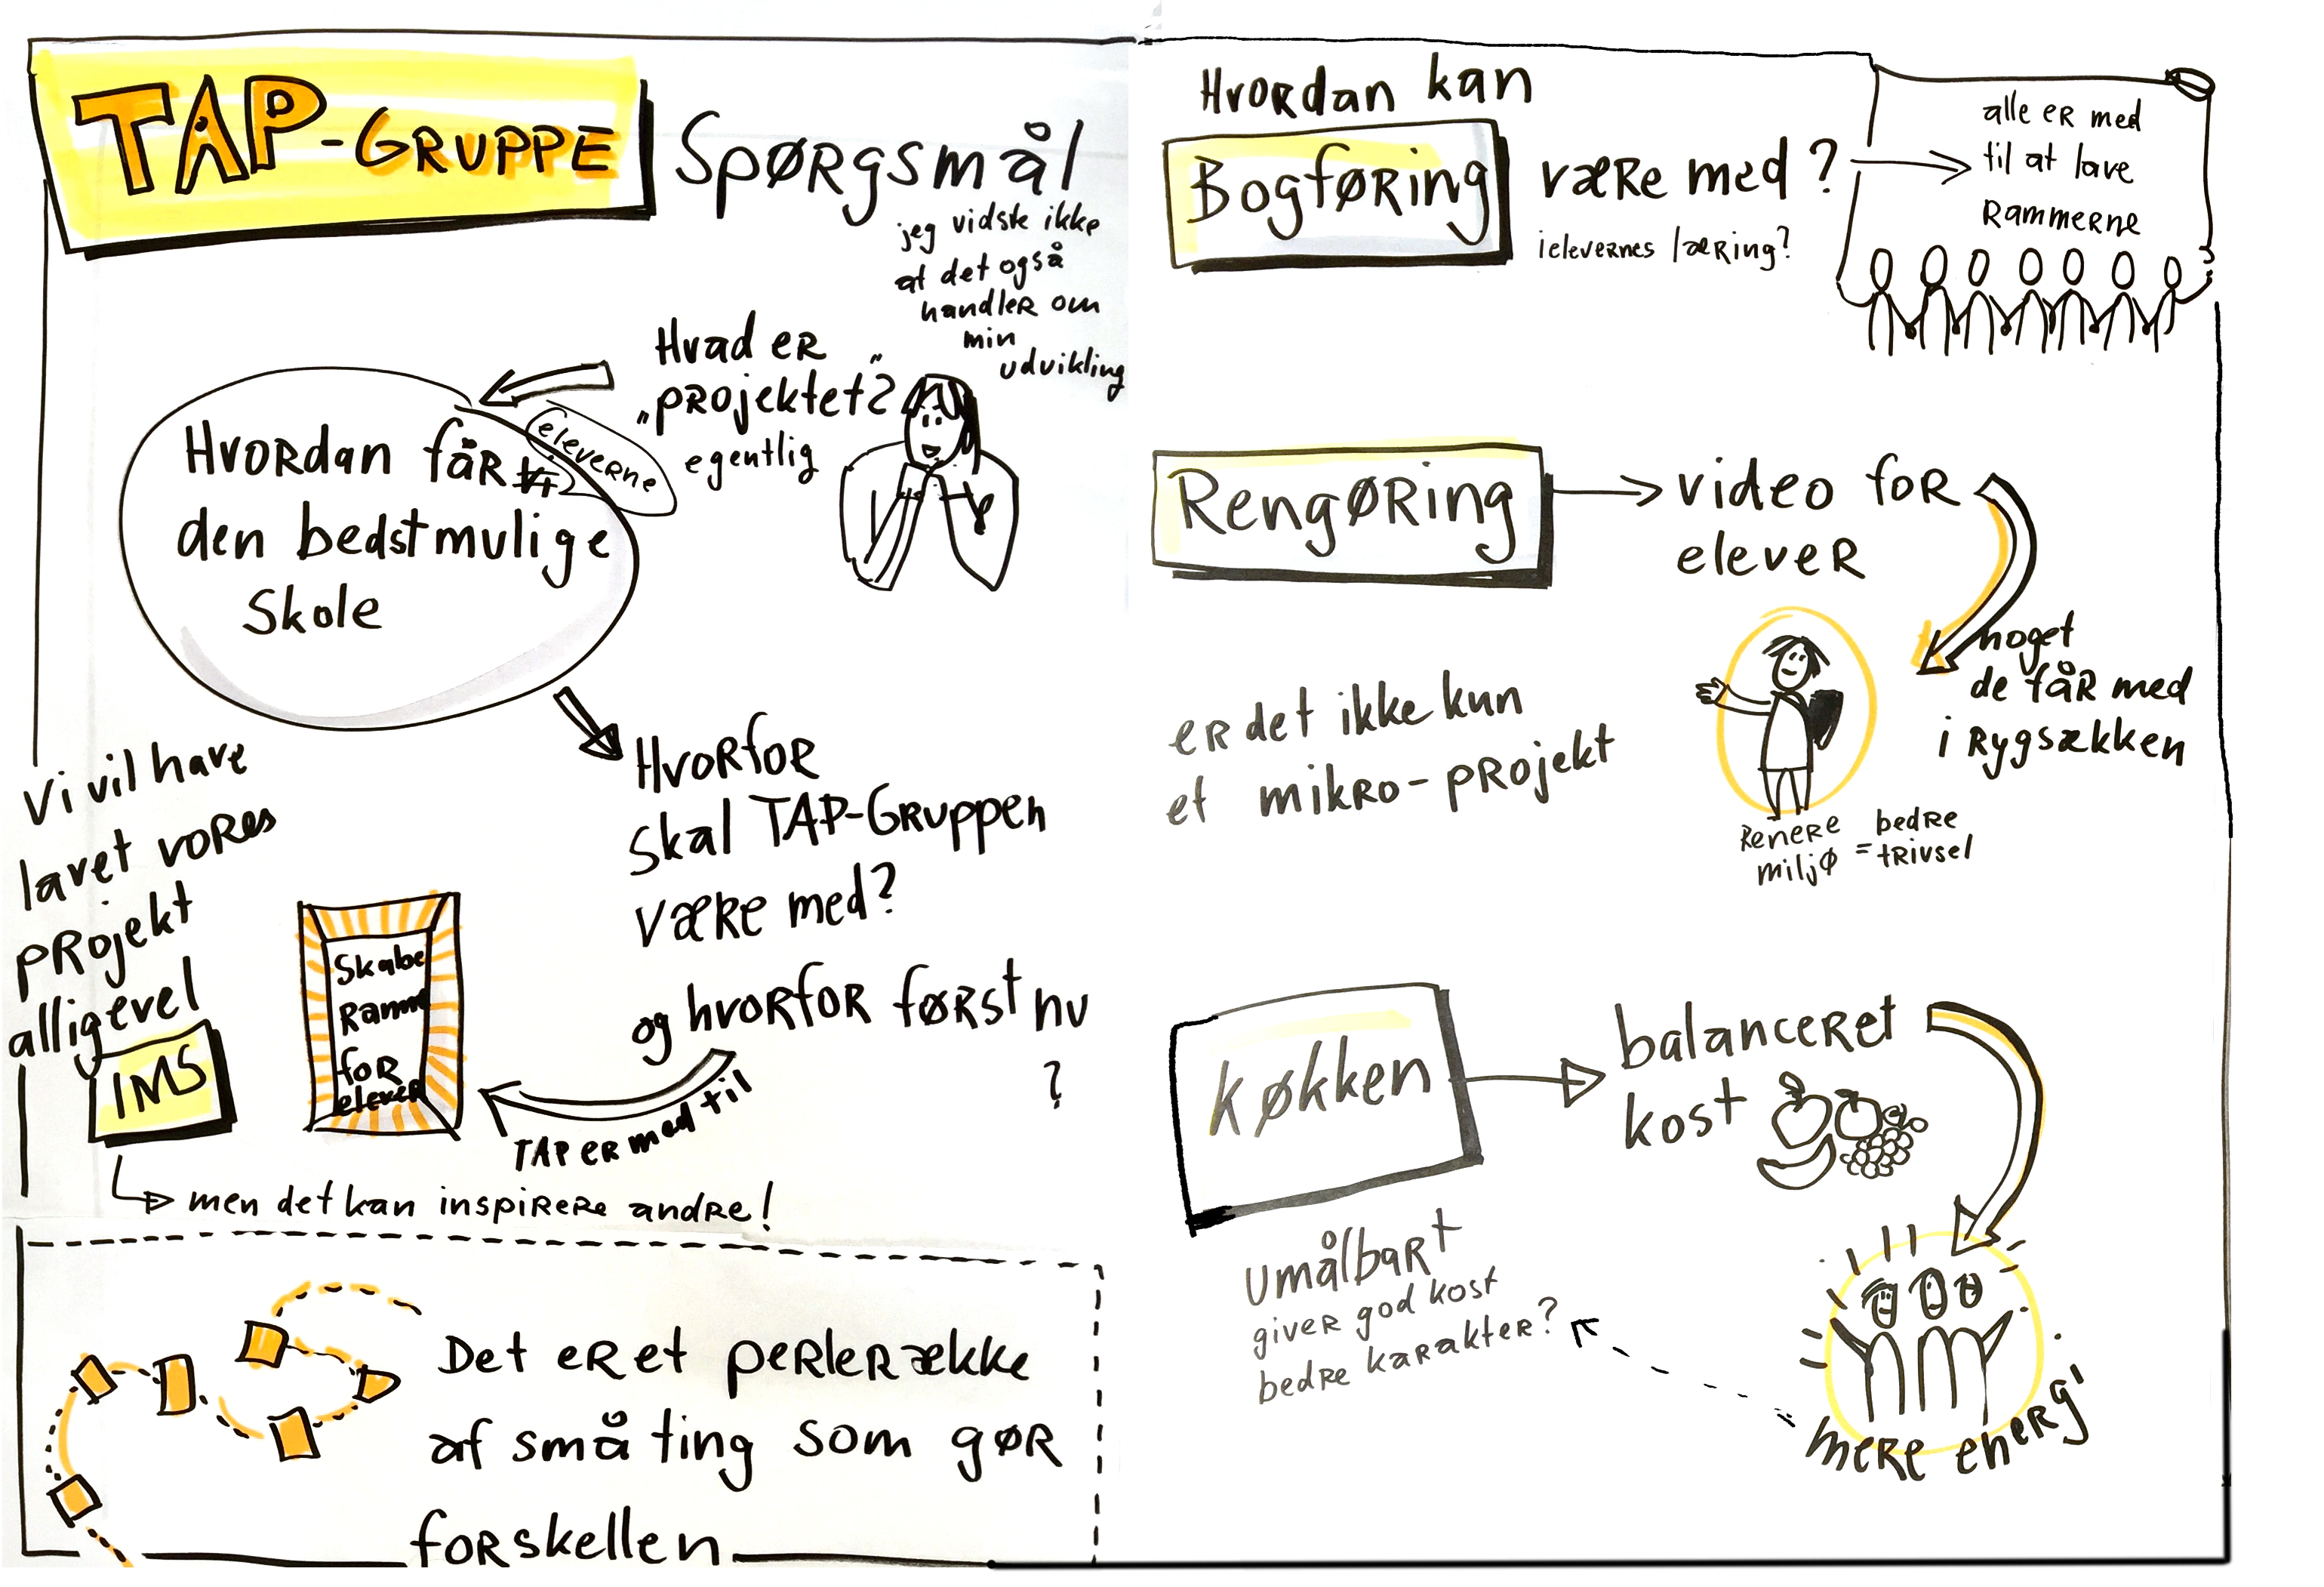 TAP-GRUPPE
Spørgsmål
jeg vidste ikke
at det også
handler om
min
udvikling
Hvad er
„projektet"?
egentlig
Hvordan får vi
eleverne
den bedstmulige
Skole
Hvorfor
skal TAP-Gruppen
være med?
og hvorfor først nu
?
TAP er med til
Skabe
Ramme
for
elever
Vi vil have
lavet vores
projekt
alligevel
IMS
men det kan inspirere andre!
Det er et perlerække
af små ting som gør
forskellen
Hvordan kan
Bogføring
være med?
i elevernes læring?
alle er med
til at lave
Rammerne
Rengøring
video for
elever
noget
de får med
i rygsækken
er det ikke kun
et mikro-projekt
Renere
miljø
= bedre
trivsel
Køkken
balanceret
kost
umålbart
giver god kost
bedre karakter?
mere energi